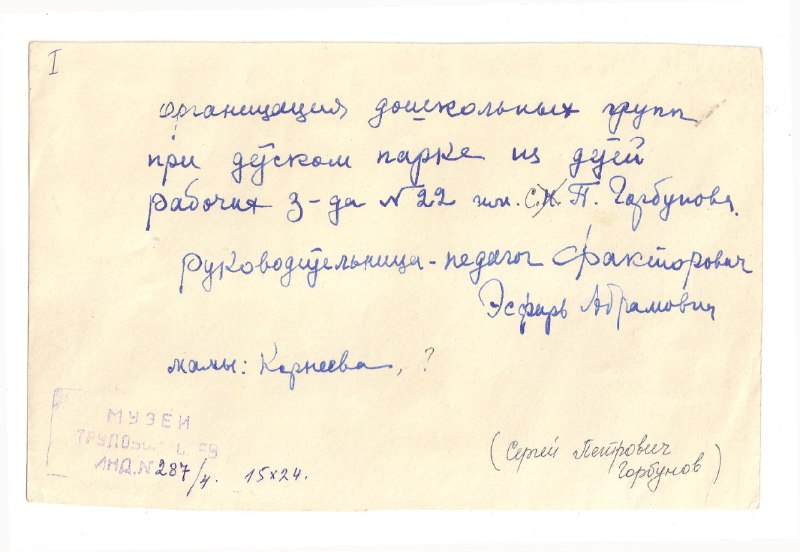 I
организация дошкольных групп
при детском парке из детей
рабочих з-да №22 им. С.П. Горбунова.
руководительница - педагог Факторович
Эсфирь Абрамович
мамы: Корнеева, ?
МУЗЕЙ
ИНД.N 287/4. 15х24.
(Сергей Петрович
Горбунов)